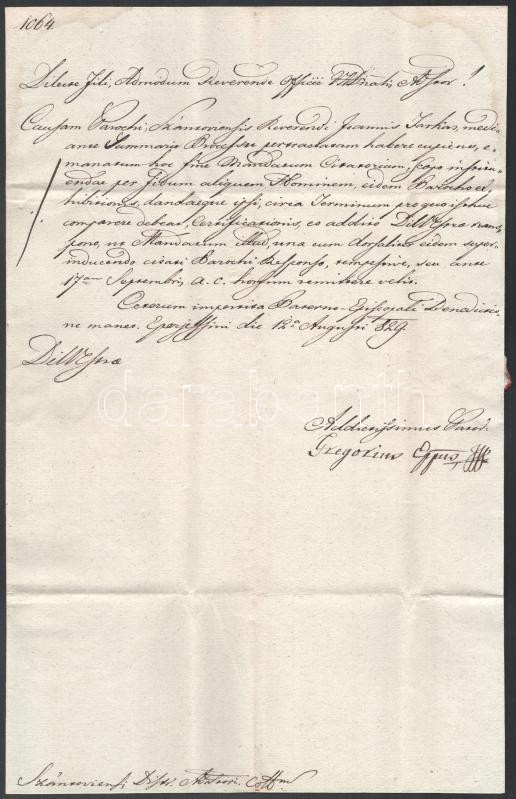 1064.
Dilecte Fili, Admodum Reverende Officii V.A.Dralis Assor!
Causam Parochi Szántoviensis Reverendi Joannis Tarkas, medi-
ante Summario Processu pertractatam habere cupiens, e-
manatum hoc fine Mandatum Citatorium, scopo institu-
endae per fidum aliquem Hominem, eidem Parocho ex-
hibitionis, dandaeque ipsi, circa Terminum pro quo isthuc
comparere debeat, Certificationis, eo addito Dil. Vestrae trans-
pono, ut Mandatum illud, una cum dorsaliter eidem super-
inducendo citati Parochi Responso, tempestive, seu ante
17am Septembris, a. c. horsum remittere velit.
Ceterum impertita Paterno-Episcopali Benedictio-
ne maneo. Eperjessini die 12a Augusti 829.
Dil. Vestrae
Addictissimus Pater
Gregorius Eppus
darabanth
Szántoviensi Distr.